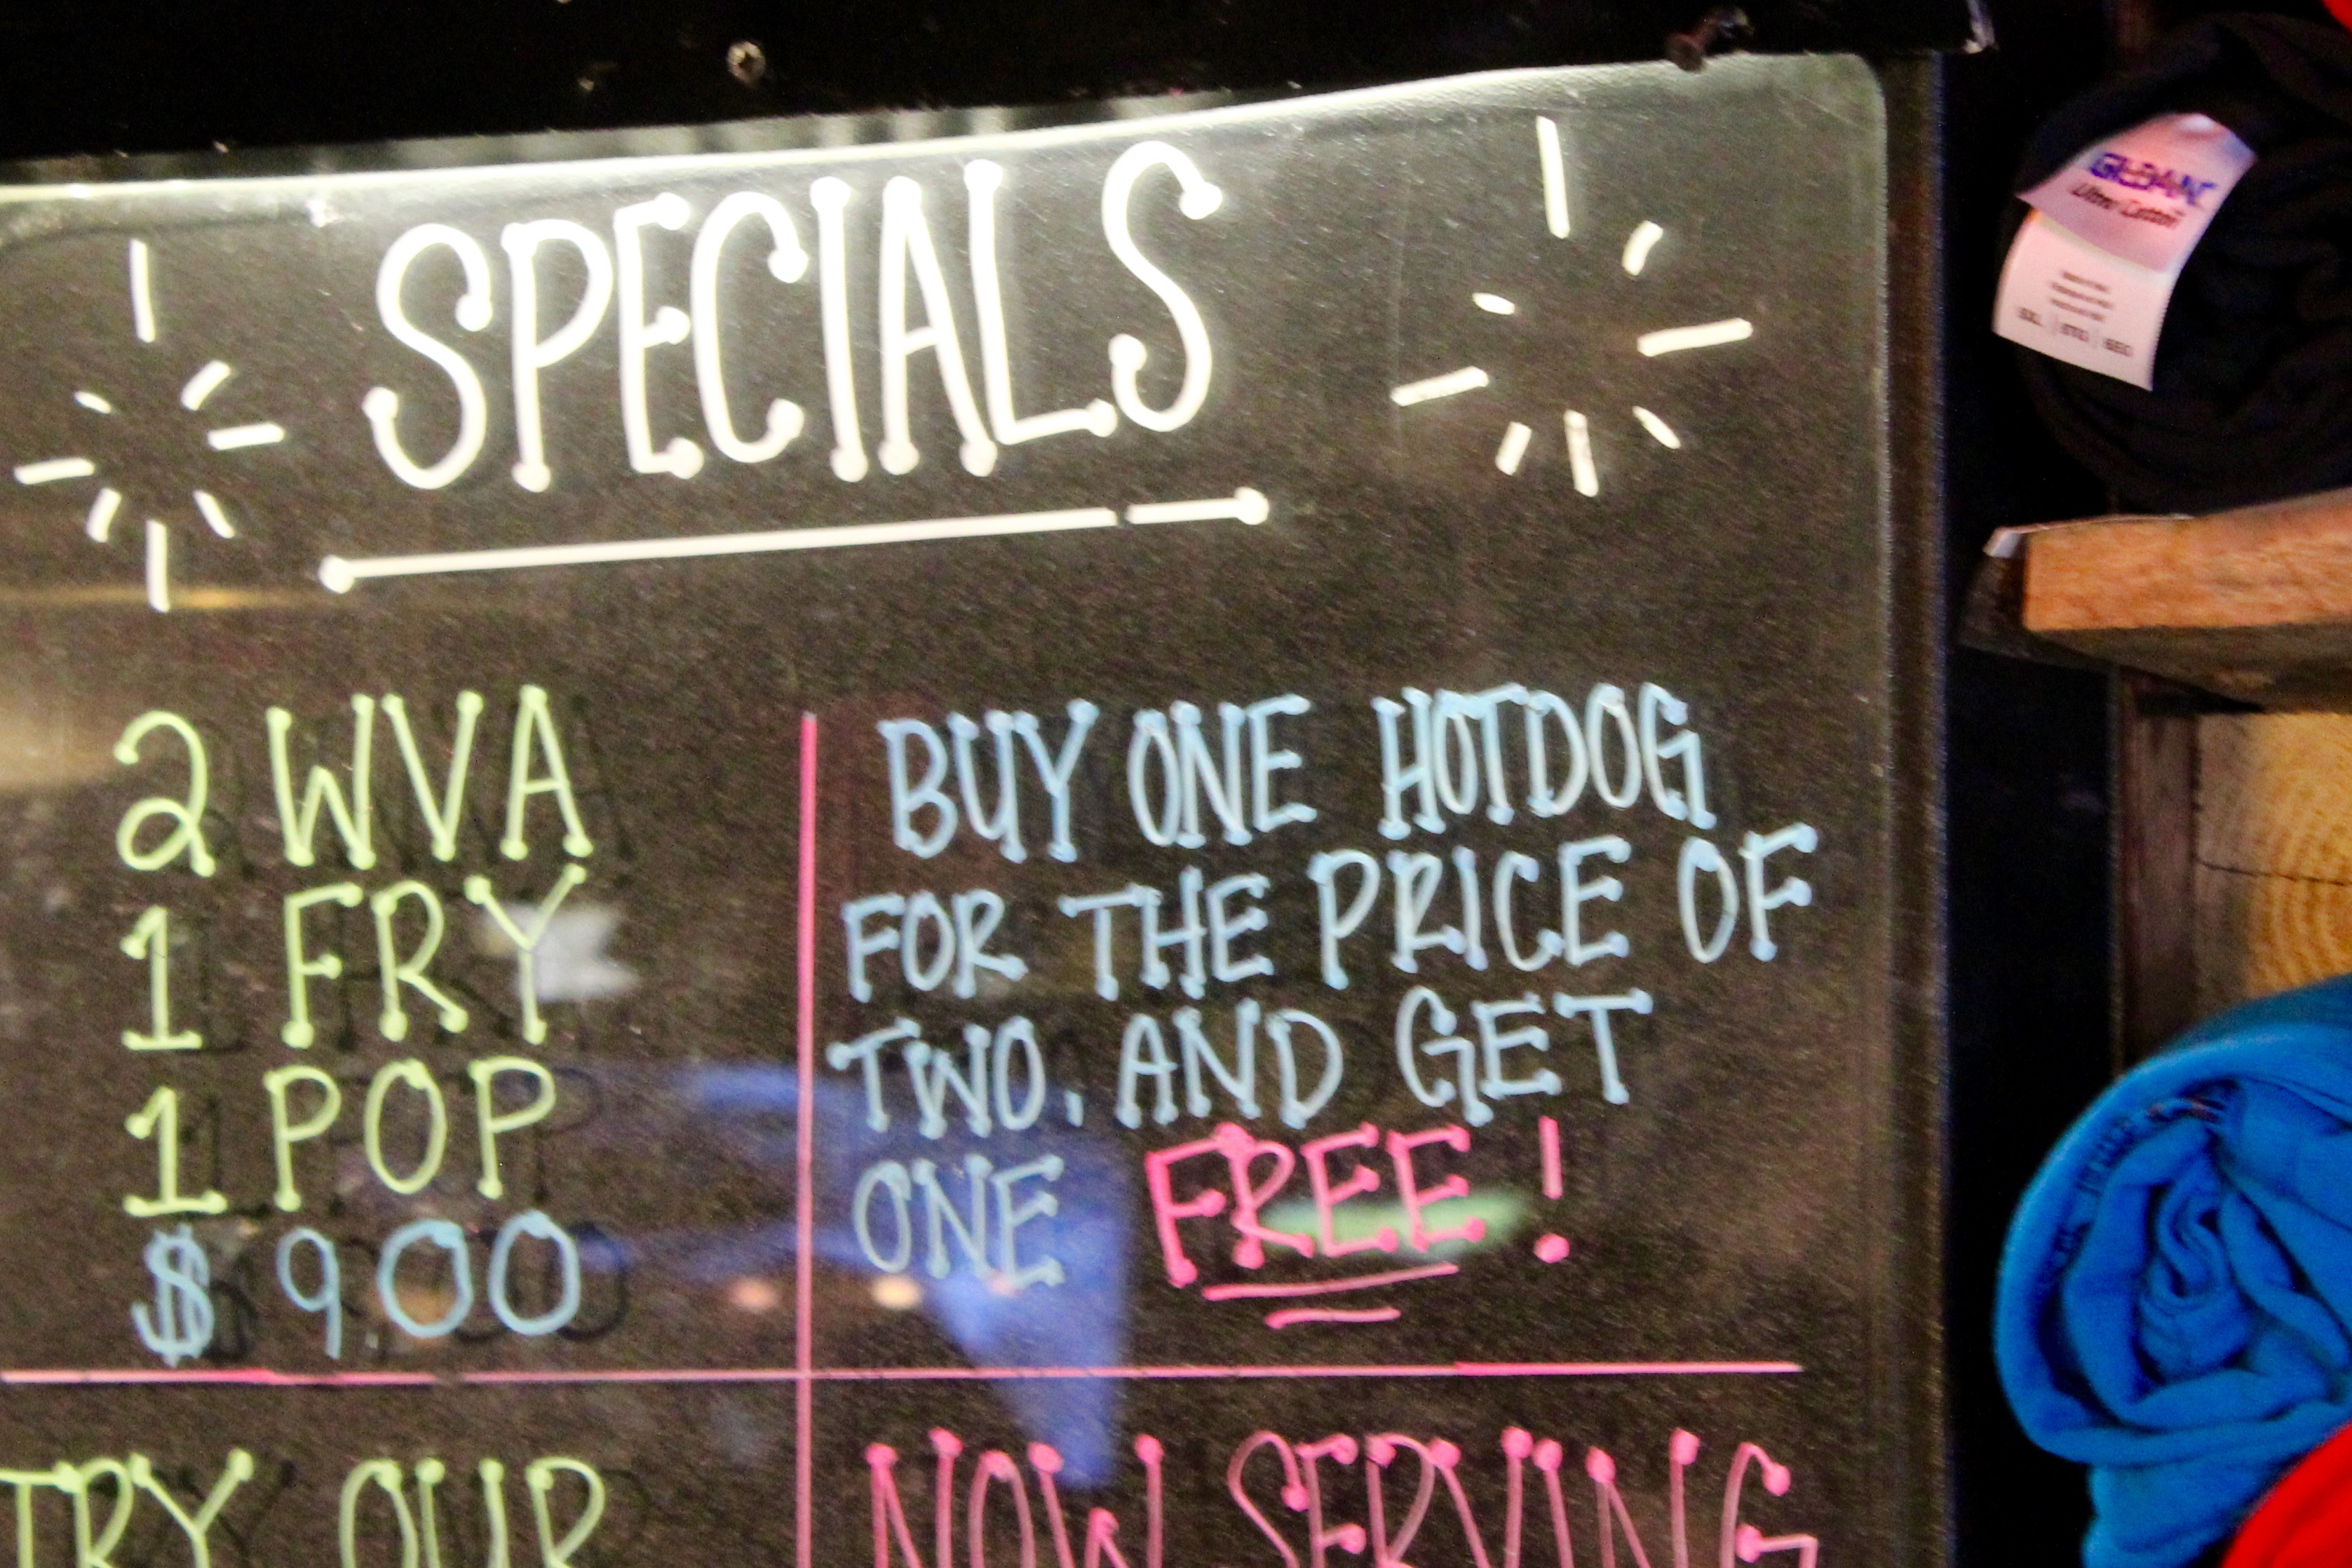 SPECIALS
2 WVA
1 FRY
1 POP
$ 9.00
BUY ONE HOTDOG
FOR THE PRICE OF
TWO. AND GET
ONE FREE!
TRY OUR
NOW SERVING
GILDAN
Ultra Cotton